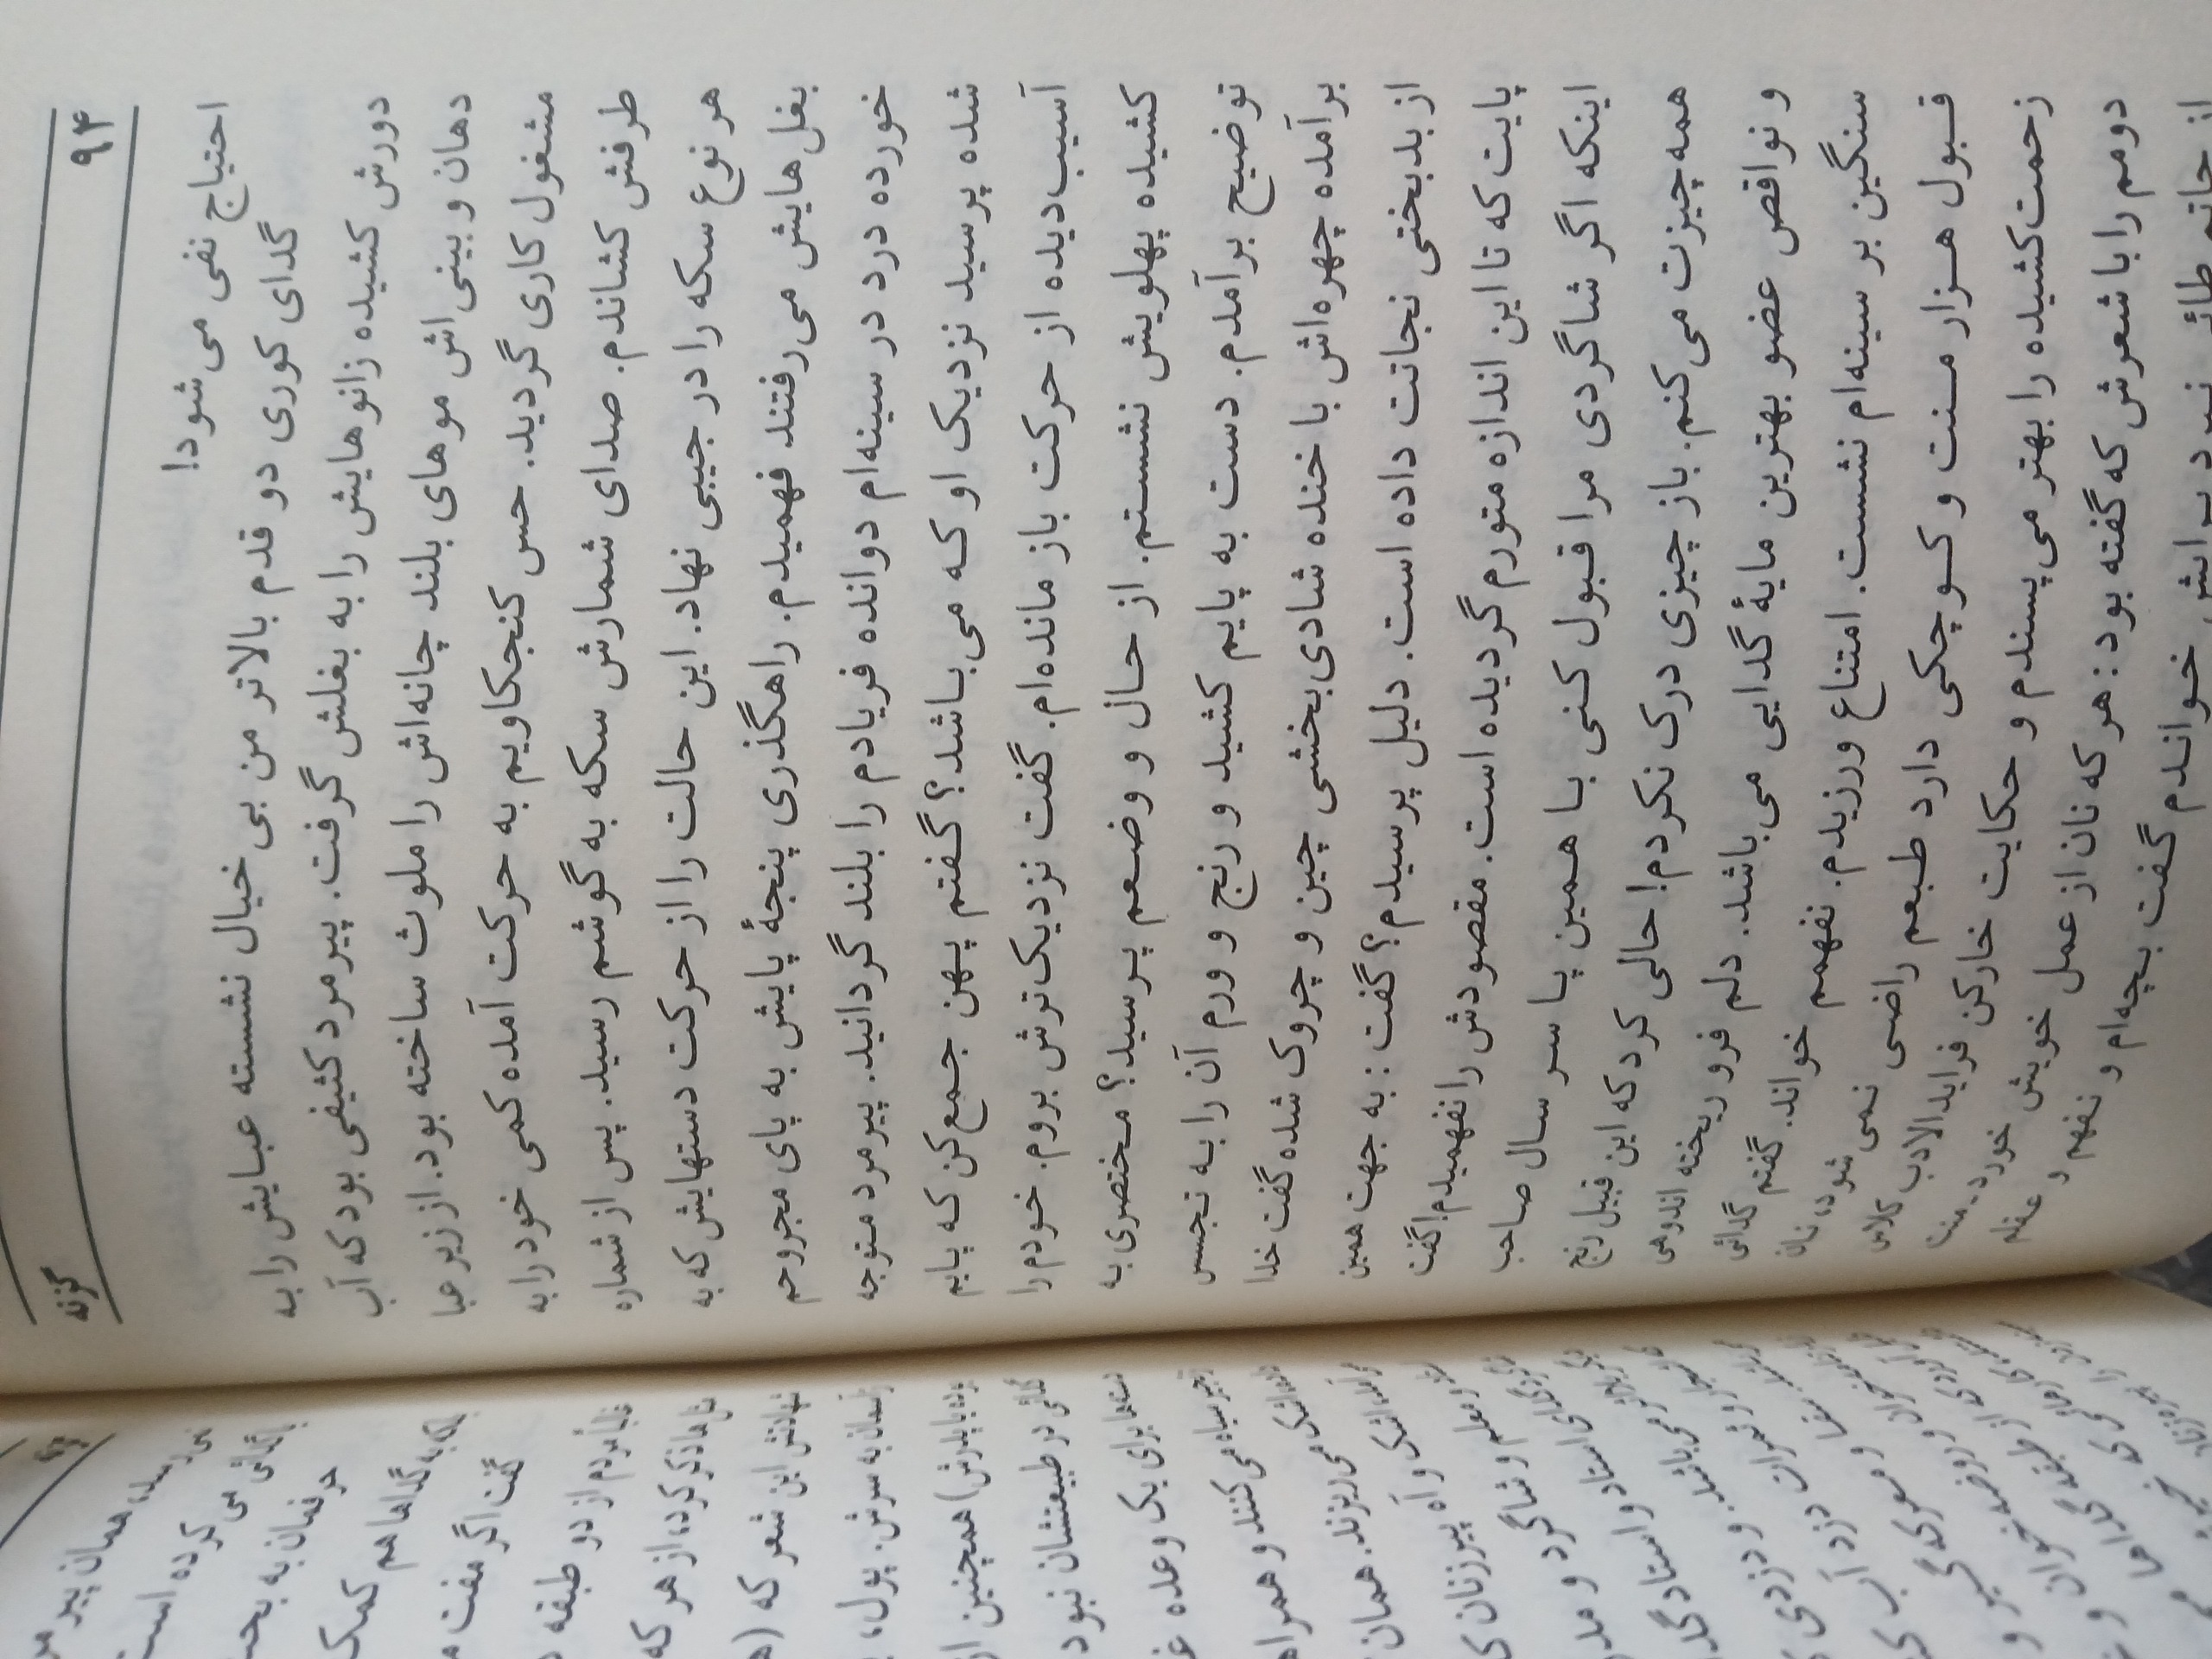 ۹۴
گزنه
احتیاج نفی می‌شود!
گدای کوری دو قدم بالاتر من بی خیال نشسته عبایش را به
دورش کشیده زانوهایش را به بغلش گرفت. پیرمرد کثیفی بود که آب
دهان و بینی‌اش موهای بلند چانه‌اش را ملوث ساخته بود. از زیر عبا
مشغول کاری گردید. حس کنجکاویم به حرکت آمده کمی خود را به
طرفش کشاندم. صدای شمارش سکه به گوشم رسید. پس از شماره
هر نوع سکه را در جیبی نهاد. این حالت را از حرکت دستهایش که به
بغل‌هایش می‌رفتند فهمیدم. راهگذری پنجۀ پایش به پای مجروحم
خورده درد در سینه‌ام دوانده فریادم را بلند گردانید. پیرمرد متوجه
شده پرسید نزدیک او که می‌باشد؟ گفتم پهن جمع‌کن که پایم
آسیب‌دیده از حرکت باز مانده‌ام. گفت نزدیک‌ترش بروم. خودم را
کشیده پهلویش نشستم. از حال و وضعم پرسید؟ مختصری به
توضیح برآمدم. دست به پایم کشید و رنج و ورم آن را به تجسس
برآمده چهره‌اش با خنده شادی‌بخشی چین و چروک شده گفت خدا
از بدبختی نجاتت داده است. دلیل پرسیدم؟ گفت: به جهت همین
پایت که تا این اندازه متورم گردیده است. مقصودش را نفهمیدم! گفت
اینکه اگر شاگردی مرا قبول کنی با همین پا سر سال صاحب
همه‌چیزت می‌کنم. باز چیزی درک نکردم! حالی کرد که این قبیل رنج
و نواقص عضو بهترین مایۀ گدایی می‌باشد. دلم فرو ریخته اندوهی
سنگین بر سینه‌ام نشست. امتناع ورزیدم. نفهمم خواند. گفتم گدائی
قبول هزار منت و کوچکی دارد طبعم راضی نمی‌شود، نان
زحمت‌کشیده را بهتر می‌پسندم و حکایت خارکن فرایدالادب کلاس
دومم را با شعرش که گفته بود: هر که نان از عمل خویش خورد - منت
از حاتم طائی نبرد برایش خواندم گفت بچه‌ام و نفهم و عقلم
همان پیرمر
کرده است
حرفمان به بحـ
گداها هم کمک
گفت اگر مفت
مردم از دو طبقه
ذکر کرد، از هر که
این شعر که (ه
به سرش. پول،
همچنین از
در طبیعتشان نبود
برای یک وعده غـ
می‌کنند و همراه
می‌ریزند. همان
اشک و آه پیرزنان
و معلم و شاگرد و مد